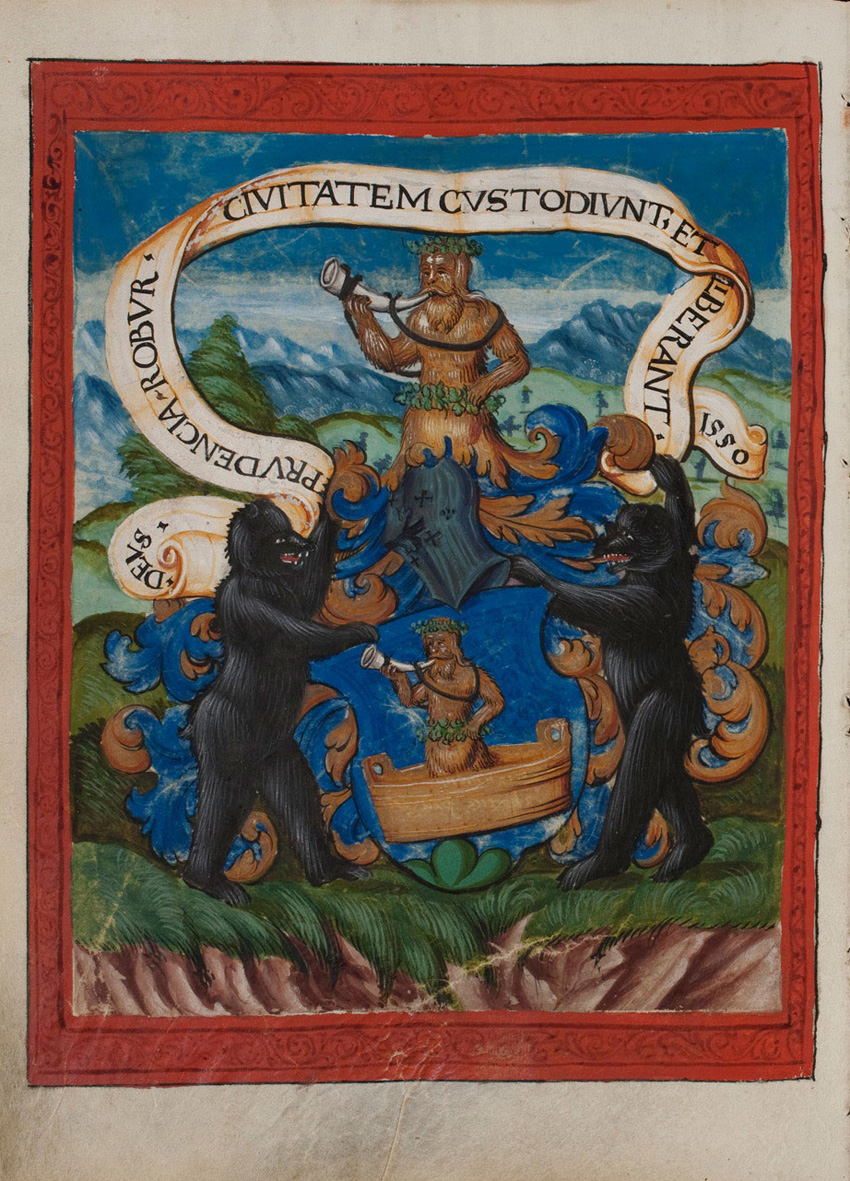 ·DEVS·
PRVDENCIA·ROBVR·
CIVITATEM CVSTODIVNT, ET
LIBERANT·
1550